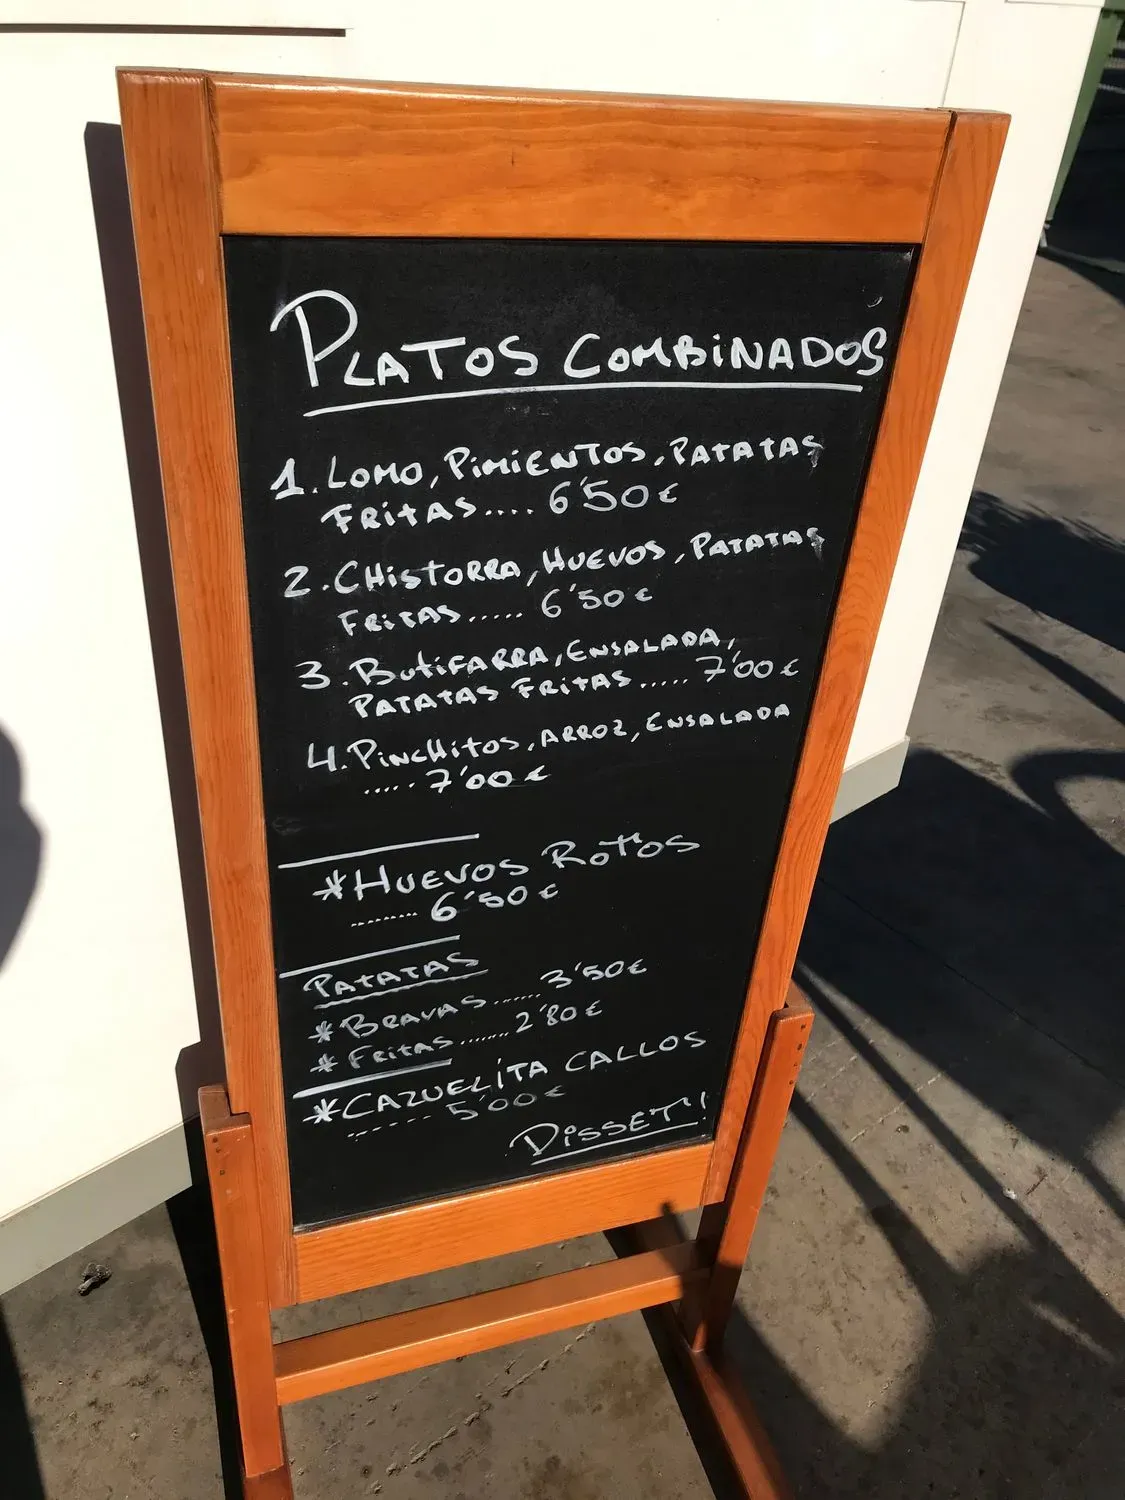 PLATOS COMBINADOS
1. LOMO, PIMIENTOS, PATATAS
FRITAS.... 6'50€
2. CHISTORRA, HUEVOS, PATATAS
FRITAS..... 6'50€
3. BUTIFARRA, ENSALADA,
PATATAS FRITAS..... 7'00€
4. PINCHITOS, ARROZ, ENSALADA
..... 7'00€
*HUEVOS ROTOS
......... 6'50€
PATATAS
*BRAVAS...... 3'50€
*FRITAS....... 2'80€
*CAZUELITA CALLOS
------ 5'00€
DISSET'!